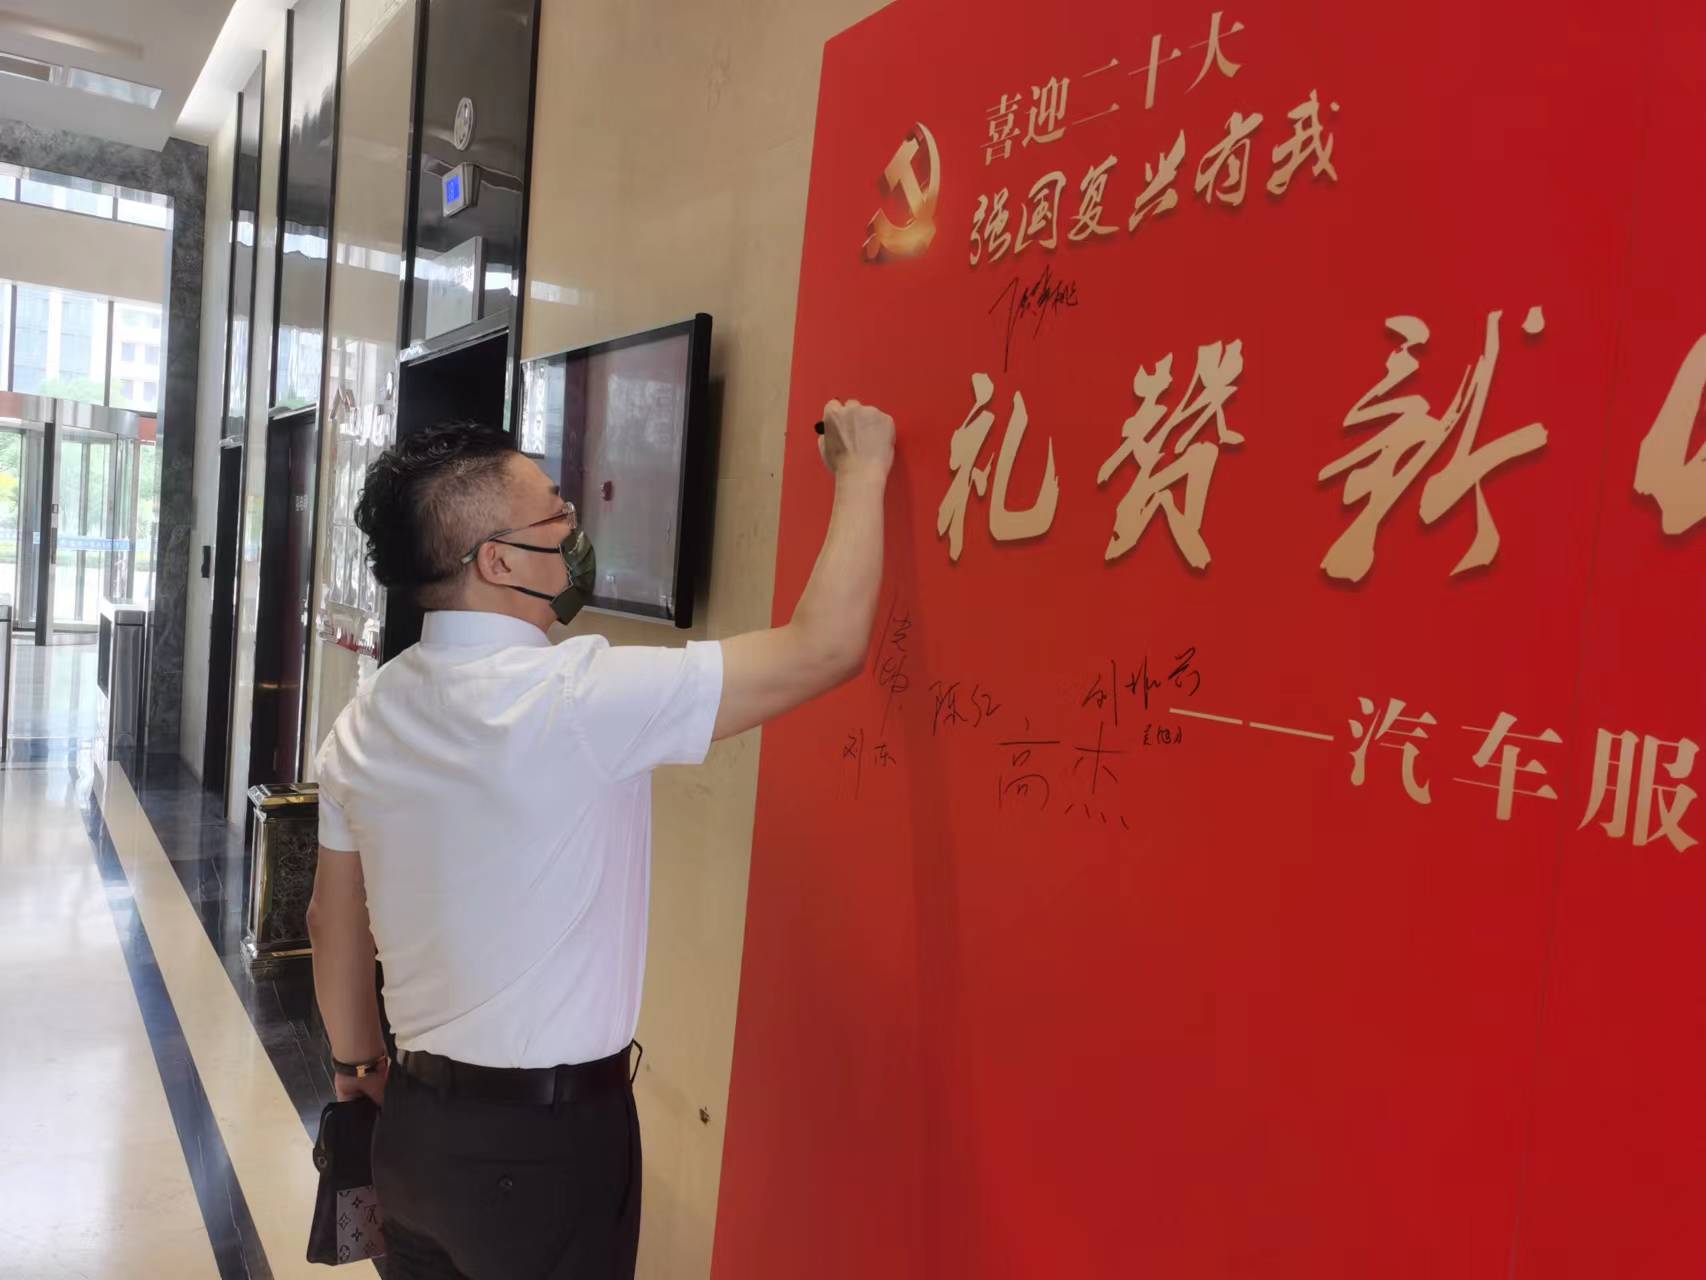 喜迎二十大
强国复兴有我
礼赞新
刘振兴
陈红
刘东
高杰
——汽车服